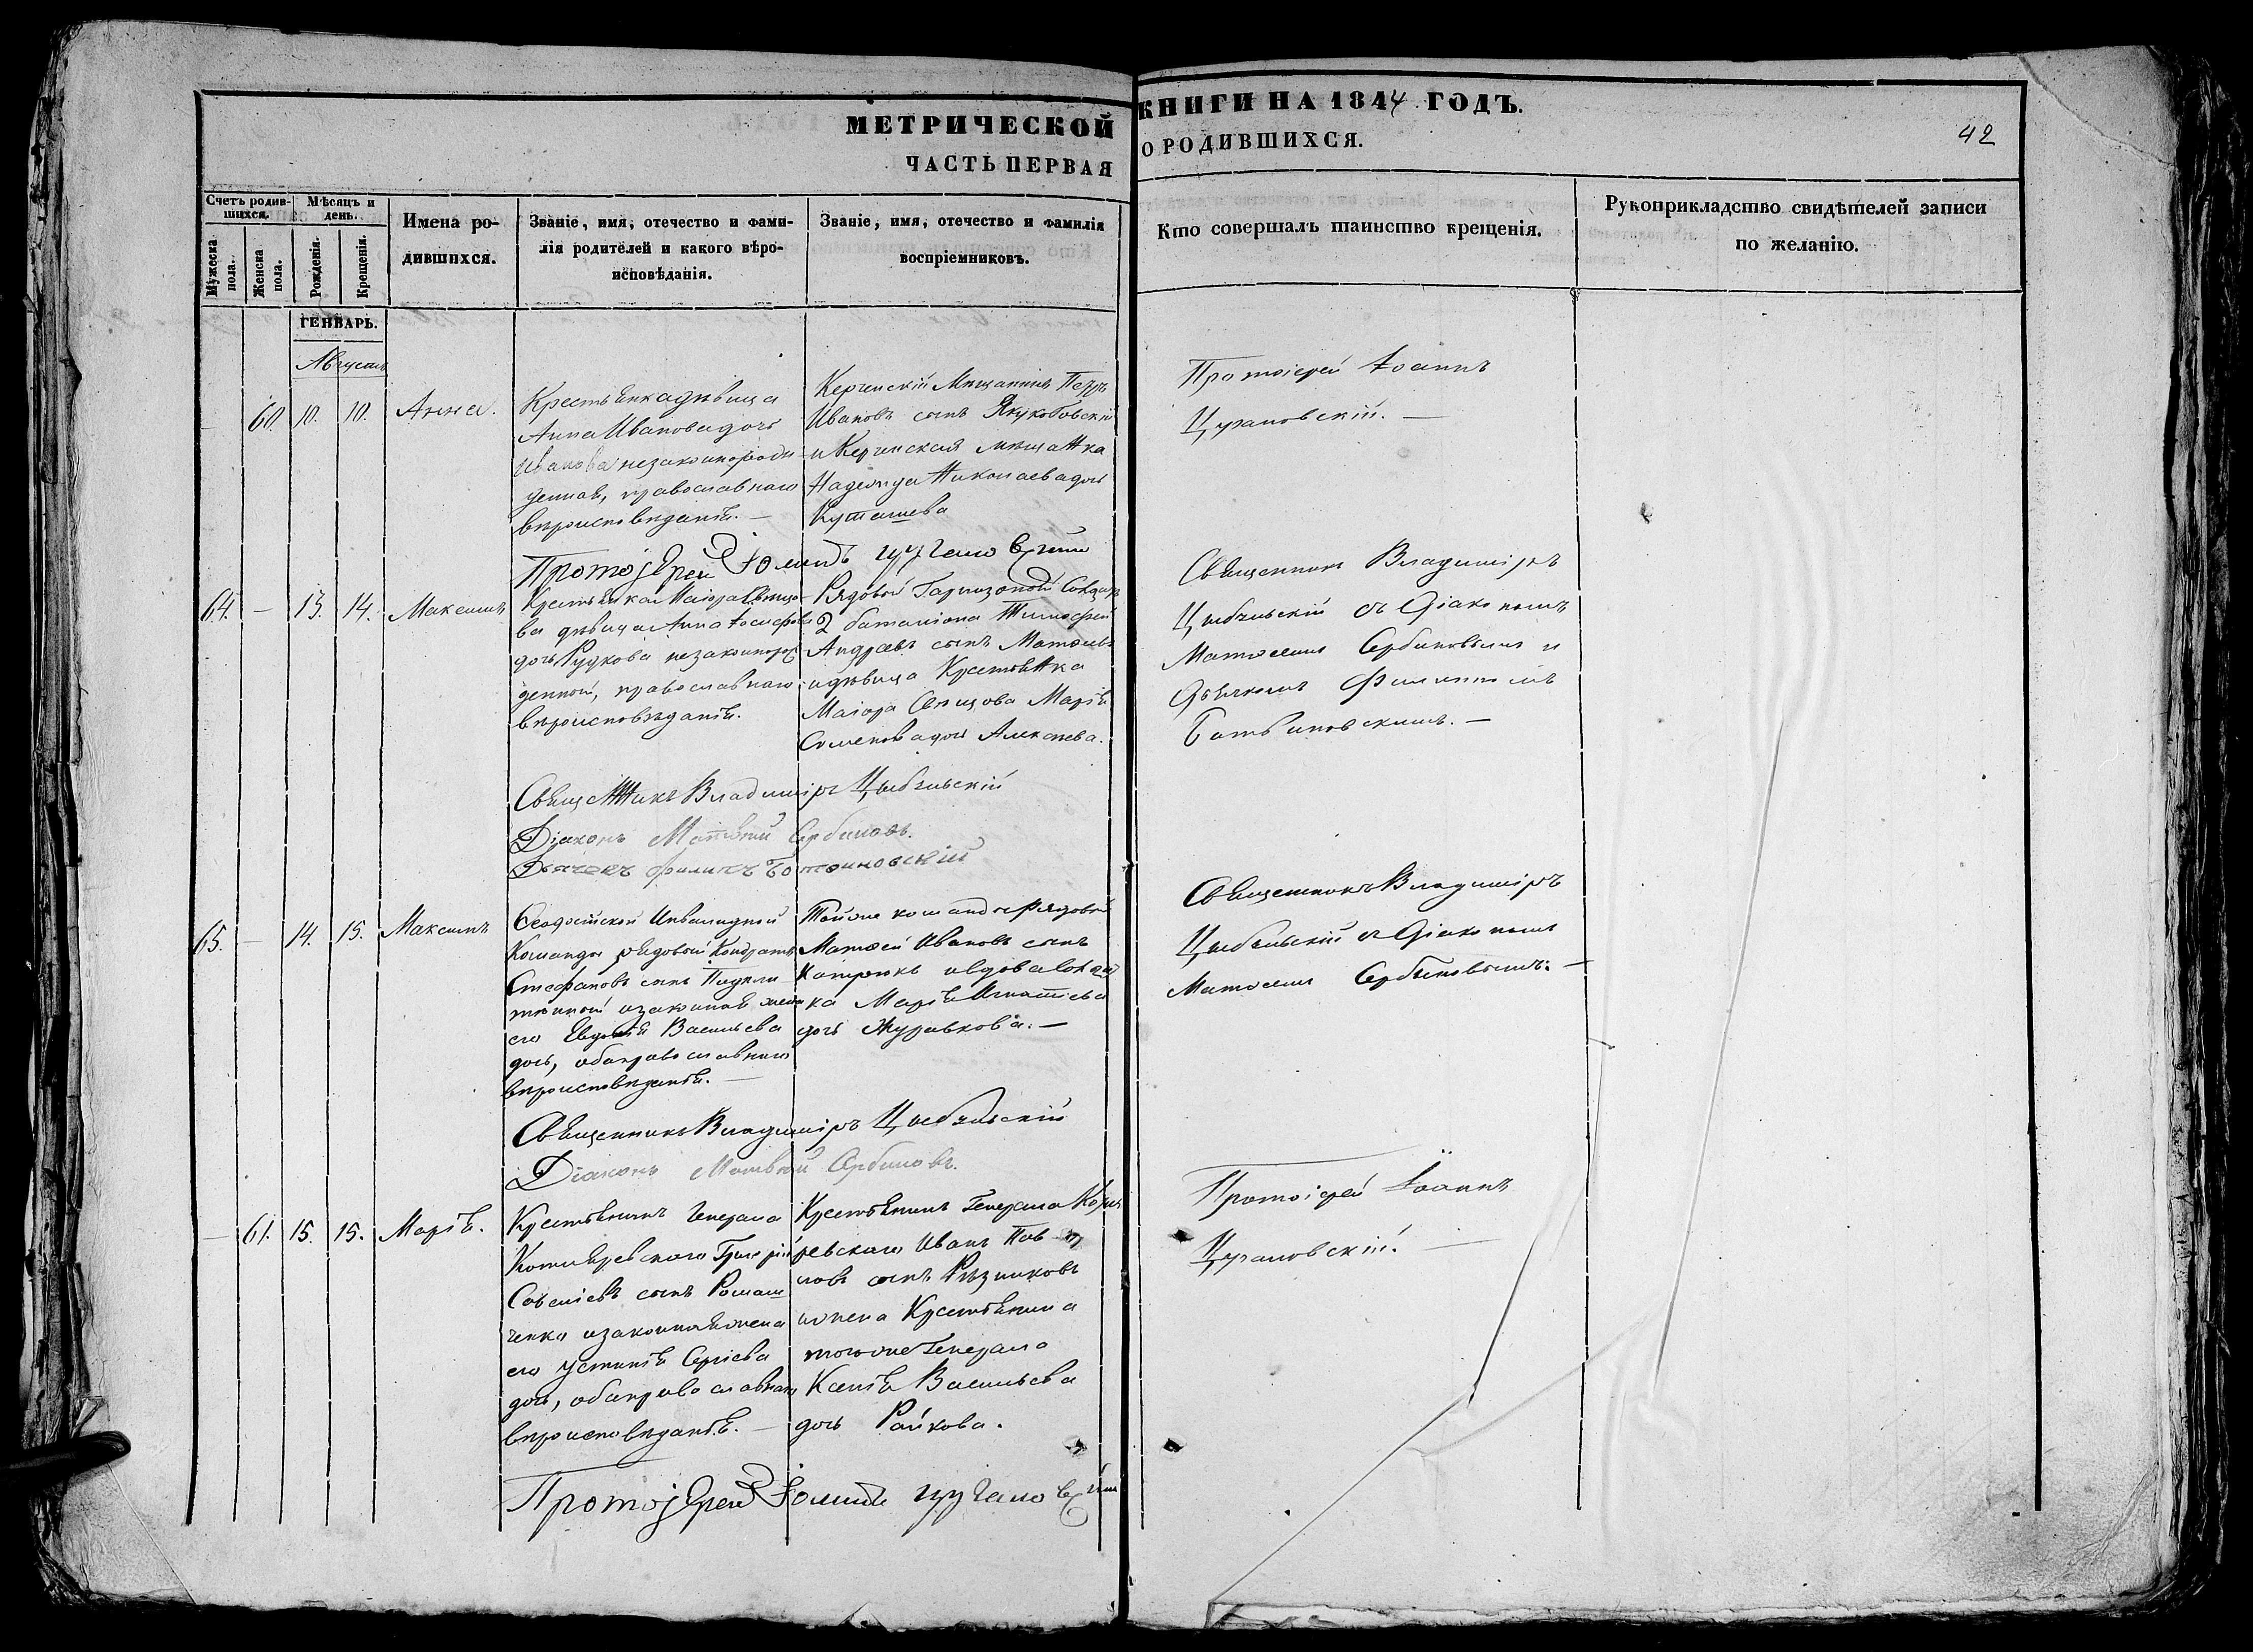 МЕТРИЧЕСКОЙ
ЧАСТЬ ПЕРВАЯ
КНИГИ НА 1844 ГОДЪ.
О РОДИВШИХСЯ.
42
Счетъ родив-
шихся.
Мужеска
пола.
Женска
пола.
Мѣсяцъ и
день.
Рожденія.
Крещенія.
Имена ро-
дившихся.
Званіе, имя, отечество и фами-
лія родителей и какого вѣро-
исповѣданія.
Званіе, имя, отечество и фамилія
воспріемниковъ.
Кто совершалъ таинство крещенія.
Рукоприкладство свидѣтелей записи
по желанію.
ГЕНВАРЬ.
Августъ
60. 10. 10. Анна.
Крестьянка дѣвица
Анна Иванова дочь
Иванова незаконорож
денная, православнаго
вѣроисповѣданія. —
Керченскій Мѣщанинъ Петръ
Ивановъ сынъ
и Керченская мѣщанка
Надежда Николаева дочь
Протоіерей Іоаннъ
Цугановскій. —
Протоjерей Іоаннъ Цугановскій
64. — 13. 14. Максимъ
Крестьянка Маіора Свѣщо
ва дѣвица Анна Іосифова
дочь Рудкова незаконорож
денной, православнаго
вѣроисповѣданія.
Рядовой Гарнизоной
2 баталіона Тимофей
Андреевъ сынъ Матвеевъ
и дѣвица Крестьянка
Маіора Свѣщова Марія
Семенова дочь Алексеева.
Священникъ Владиміръ
Цыбульскій съ Діакономъ
Матѳеемъ Сербиновымъ и
Дьячкомъ Филиппомъ
Ботвиновскимъ. —
Священникъ Владиміръ Цыбульскій
Діаконъ Матвѣй Сербиновъ.
Дьячекъ Филипъ Ботвиновскій
65. — 14. 15. Максимъ
Ѳеодосійской Инвалидной
Команды рядовой Кондратъ
Стефановъ сынъ
и законная жена
его Евдокія Васильева
дочь, оба православнаго
вѣроисповѣданія. —
Тойже команды Рядовой
Матѳей Ивановъ сынъ
и вдова Солдат
ка Марія Игнатіева
дочь Журавкова. —
Священникъ Владиміръ
Цыбульскій съ Діакономъ
Матѳеемъ Сербиновымъ. —
Священникъ Владиміръ Цыбульскій
Діаконъ Матвѣй Сербиновъ.
— 61. 15. 15. Марія.
Крестьянинъ Генерала
Котляревскаго Григорій
Савеліевъ сынъ Ромаш
ченко и законная жена
его Устинія Сергіева
дочь, оба православнаго
вѣроисповѣданія. —
Крестьянинъ Генерала Котля
ревскаго Иванъ Пав
ловъ сынъ Рѣзниковъ
и жена Крестьянина
тогоже Генерала
Ксенія Васильева
дочь Райкова.
Протоіерей Іоаннъ
Цугановскій. —
Протоjерей Іоаннъ Цугановскій